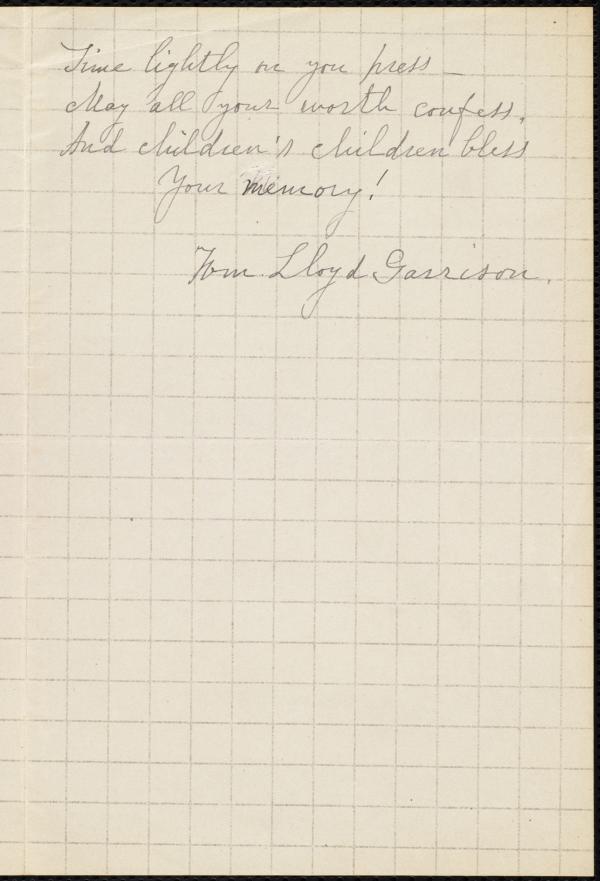 Time lightly on you press —
May all your worth confess,
And children's children bless
Your memory!
Wm. Lloyd Garrison.